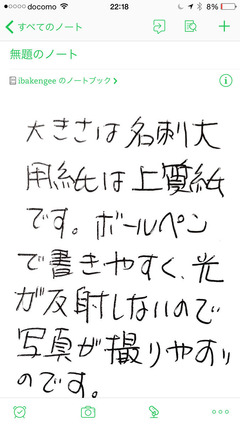 docomo 22:18 8%
すべてのノート
無題のノート
ibakengee のノートブック
大きさは名刺大
用紙は上質紙
です。ボールペン
で書きやすく、光
が反射しないので
写真が撮りやすい
のです。